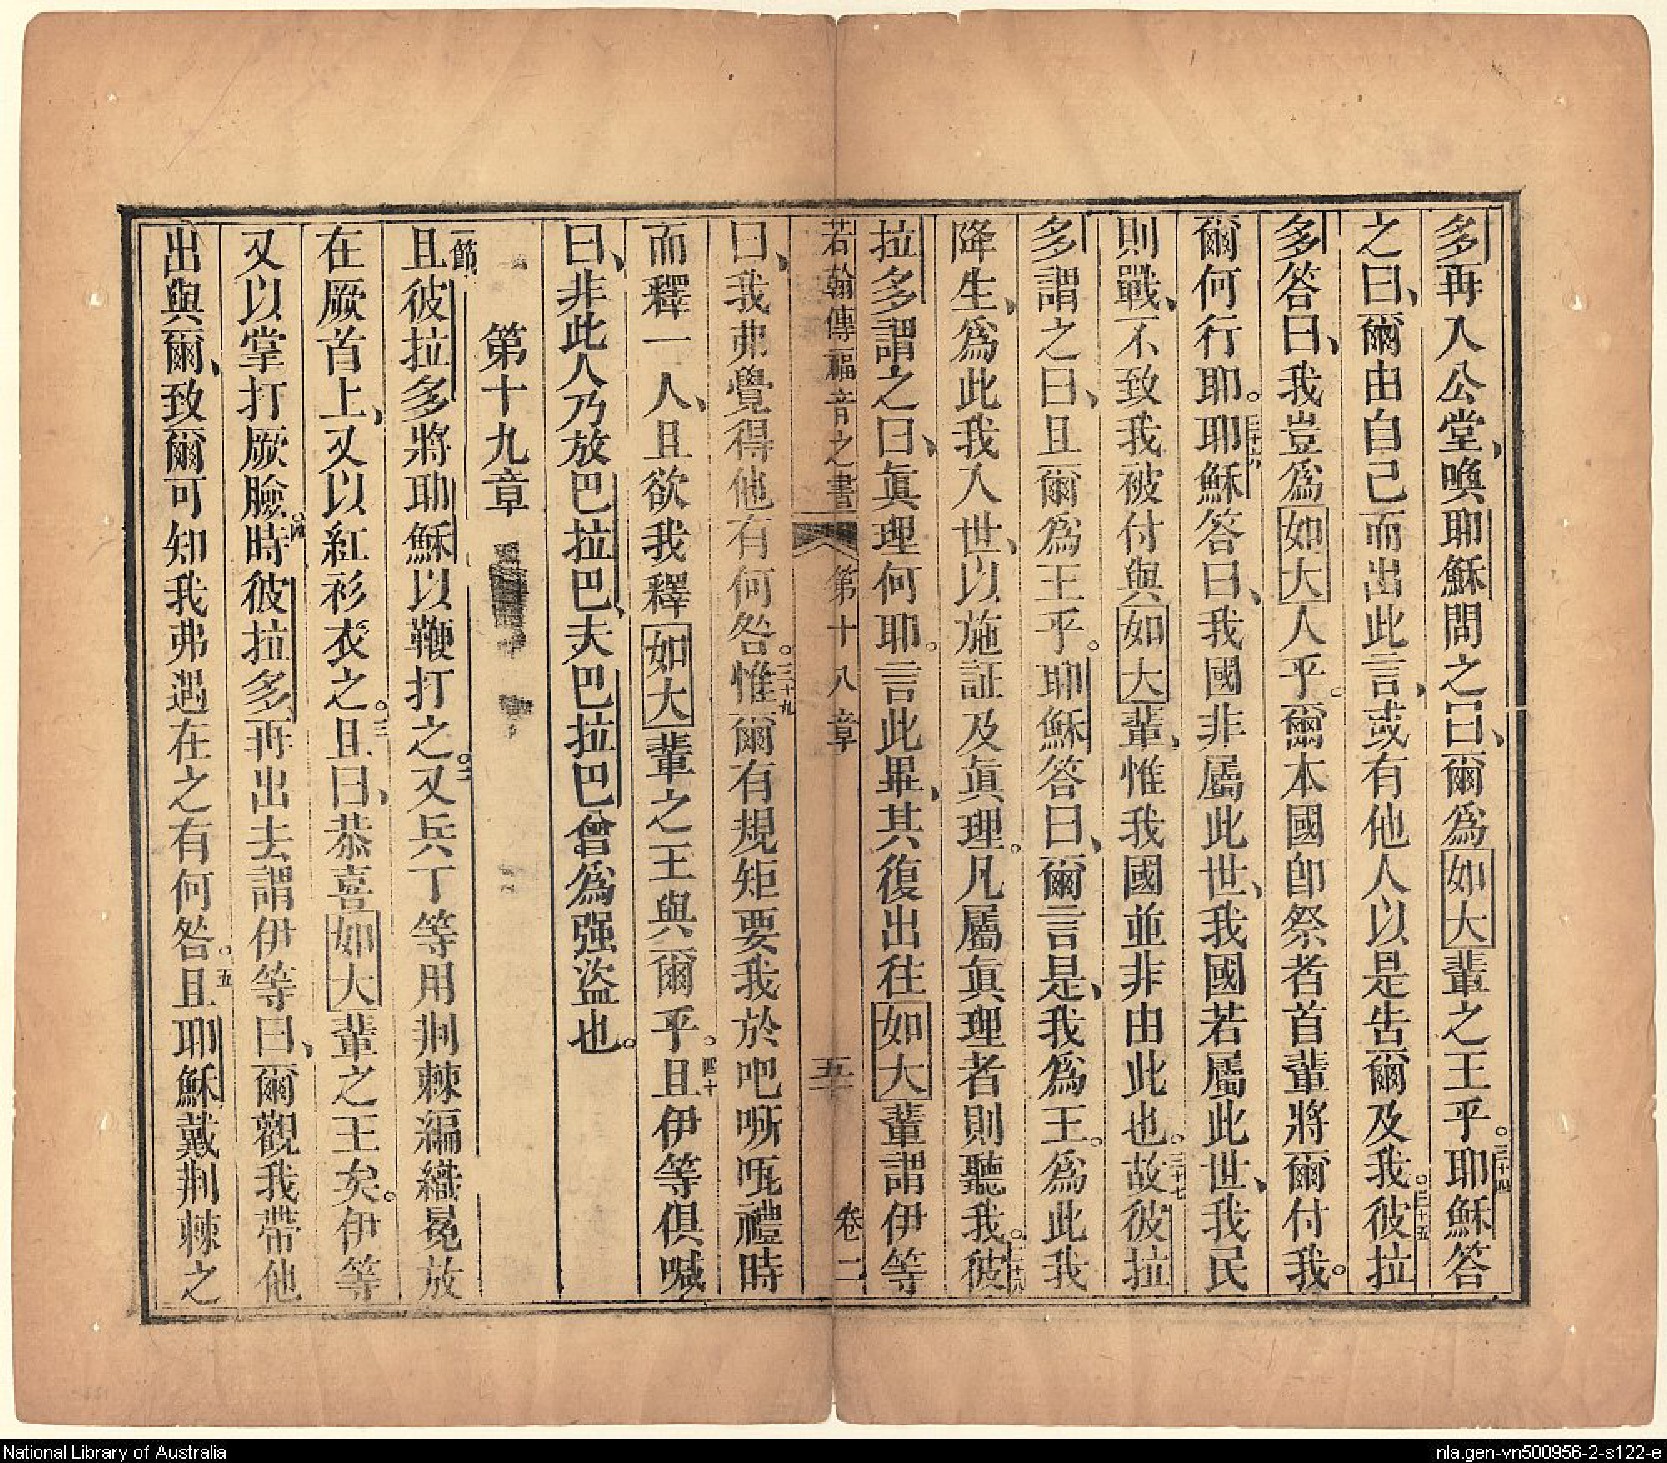 多再入公堂、喚耶穌問之曰、爾爲如大輩之王乎。三十四耶穌答
之曰、爾由自己而出此言、或有他人以是告爾及我。三十五彼拉
多答曰、我豈爲如大人乎。爾本國卽祭者首輩將爾付我。
爾何行耶。三十六耶穌答曰、我國非屬此世、我國若屬此世、我民
則戰、不致我被付與如大輩、惟我國並非由此也。三十七故彼拉
多謂之曰、且爾爲王乎。耶穌答曰、爾言是、我爲王。爲此我
降生、爲此我入世、以施証及眞理。凡屬眞理者則聽我。三十八彼
拉多謂之曰、眞理何耶。言此畢、其復出往如大輩謂伊等
若翰傳福音之書 第十八章 五 卷二
曰、我弗覺得他有何咎。三十九惟爾有規矩要我於吧嘶㕶禮時
而釋一人、且欲我釋如大輩之王與爾乎。四十且伊等俱喊
曰、非此人乃放巴拉巴、夫巴拉巴曾爲强盜也。
第十九章
一節且彼拉多將耶穌以鞭打之。二又兵丁等用荆棘漏織冕放
在厥首上、又以紅衫衣之。三且曰、恭喜如大輩之王矣。伊等
又以掌打厥臉。四時彼拉多再出去謂伊等曰、爾觀我帶他
出與爾、致爾可知我弗遇在之有何咎。五且耶穌戴荆棘之
National Library of Australia
nla.gen-vn500956-2-s122-e